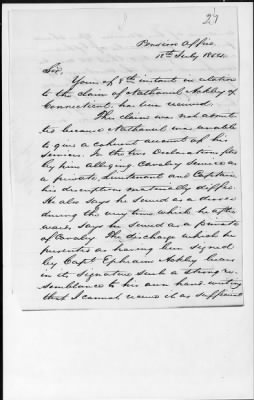 27
Pension Office
11th July 1854.
Sir,
Yours of 8th instant in relation
to the claim of Nathaniel Ackley of
Connecticut has been received.
The claim was not admit-
ted because Nathaniel was unable
to give a coherent account of his
services. In the two Declarations filed
by him alleging Cavalry Service as
a private, lieutenant and Captain
his descriptions materially differ.
He also says he served as a
during the very time which he after-
wards says he served as a private
of Cavalry. The discharge which he
presents as having been signed
by Capt Ephraim Ackley bears
in its signature such a strong re-
semblance to his own hand-writing
that I cannot view it as sufficient